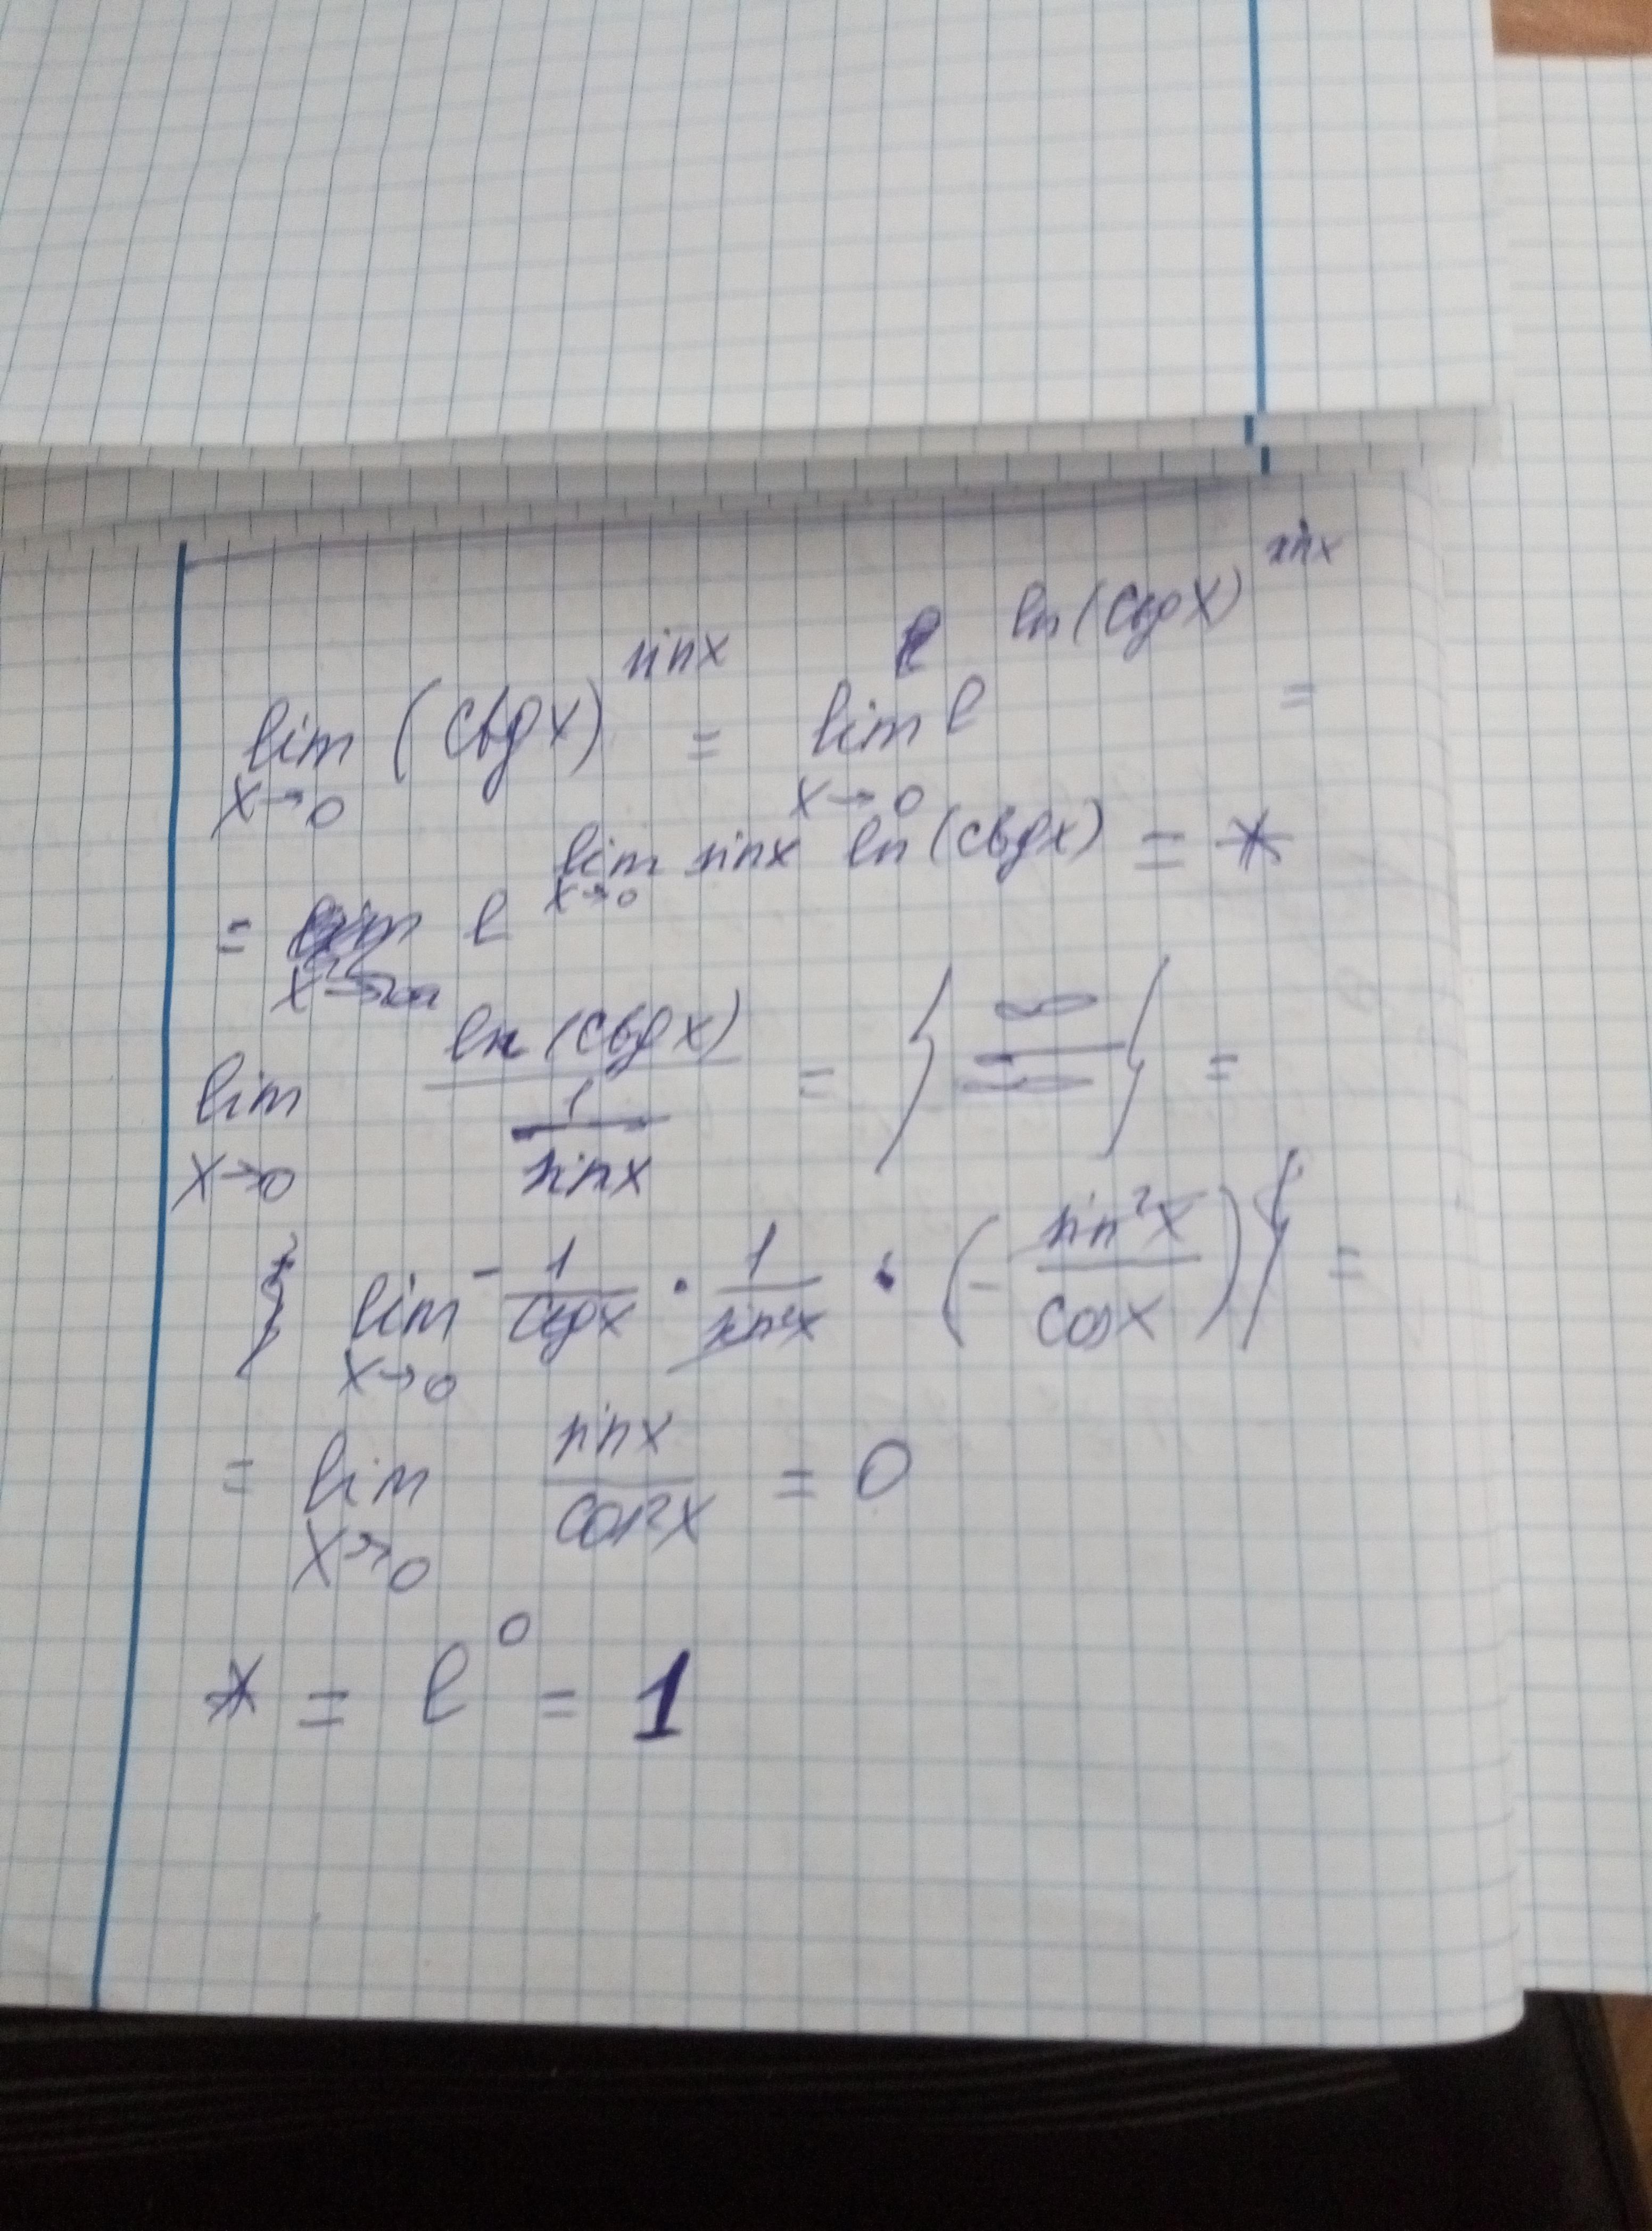 lim x→0 (ctg x)^sin x = lim x→0 e^ln(ctg x)^sin x =
= e^lim x→0 sin x ln(ctg x) = *
lim x→0 ln(ctg x) / (1 / sin x) = } ∞ / ∞ { =
} lim x→0 - 1/ctg x · 1/sin²x · (- sin²x / cos x) } =
= lim x→0 sin x / cos²x = 0
* = e^0 = 1